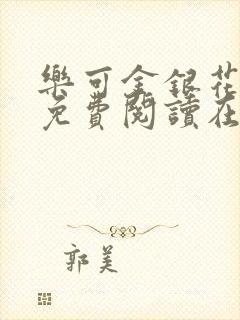 樂可金銀花
免費閱讀在
郭美